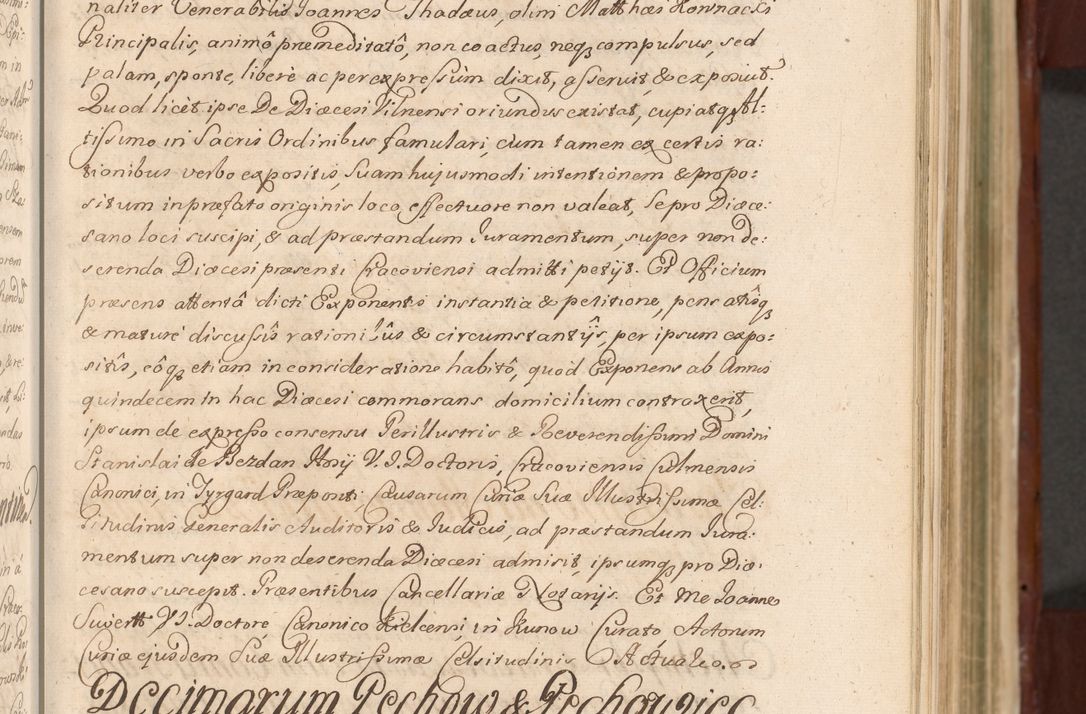 naliter Venerabilis Joannes Thadæus, olim Matthæi Hownacki
Principalis, animô præmeditatô, non coactus, neq₃ compulsus, sed
palam, sponte, liberè ac per expressùm dixit, asseruit & exposuit.
Quod licèt ipse De Diæcesi Vilnensi oriundus existat, cupiatq₃ Al:
tissimo in Sacris Ordinibus famulari, cum tamen ex certis ra:
tionibus verbo expositis, suam hujusmodi intentionem & propo:
situm in præfato originis loco effectuare non valeat, se pro Diæce:
sano loci suscipi, & ad præstandum Juramentum, super non de:
serenda Diæcesi præsenti Cracoviensi admitti petijt. Et Officium
præsens attentâ dicti Exponentis instantia & petitione, pensatîsq₃
& maturè discussîs rationibûs & circumstantijs, per ipsum expo:
sitîs, eôq₃ etiam in consideratione habitô, quod Exponens ab Annis
quindecem in hac Diæcesi commorans domicilium contraxerit,
ipsum de expresso consensu Perillustris & Reverendissimi Domini
Stanislai de Bezdan Hosij V. J. Doctoris, Cracoviensis Culmensis
Canonici, in Tyrgard Præpositi, Causarum Curiæ Suæ Illustrissimæ Cel:
situdinis Generalis Auditoris & Judicis, ad præstandum Jura:
mentum super non deserenda Diæcesi admisit, ipsumq₃ pro Diæ:
cesano suscepit. Præsentibus Cancellariæ Notarijs. Et Me Joanne
Suwertt V. J. Doctore, Canonico Kielcensi, in Kunow Curato, Actorum
Curiæ ejusdem Suæ Illustrissimæ Celsitudinis Actuario.
Decimarum Pechow & Pechowice